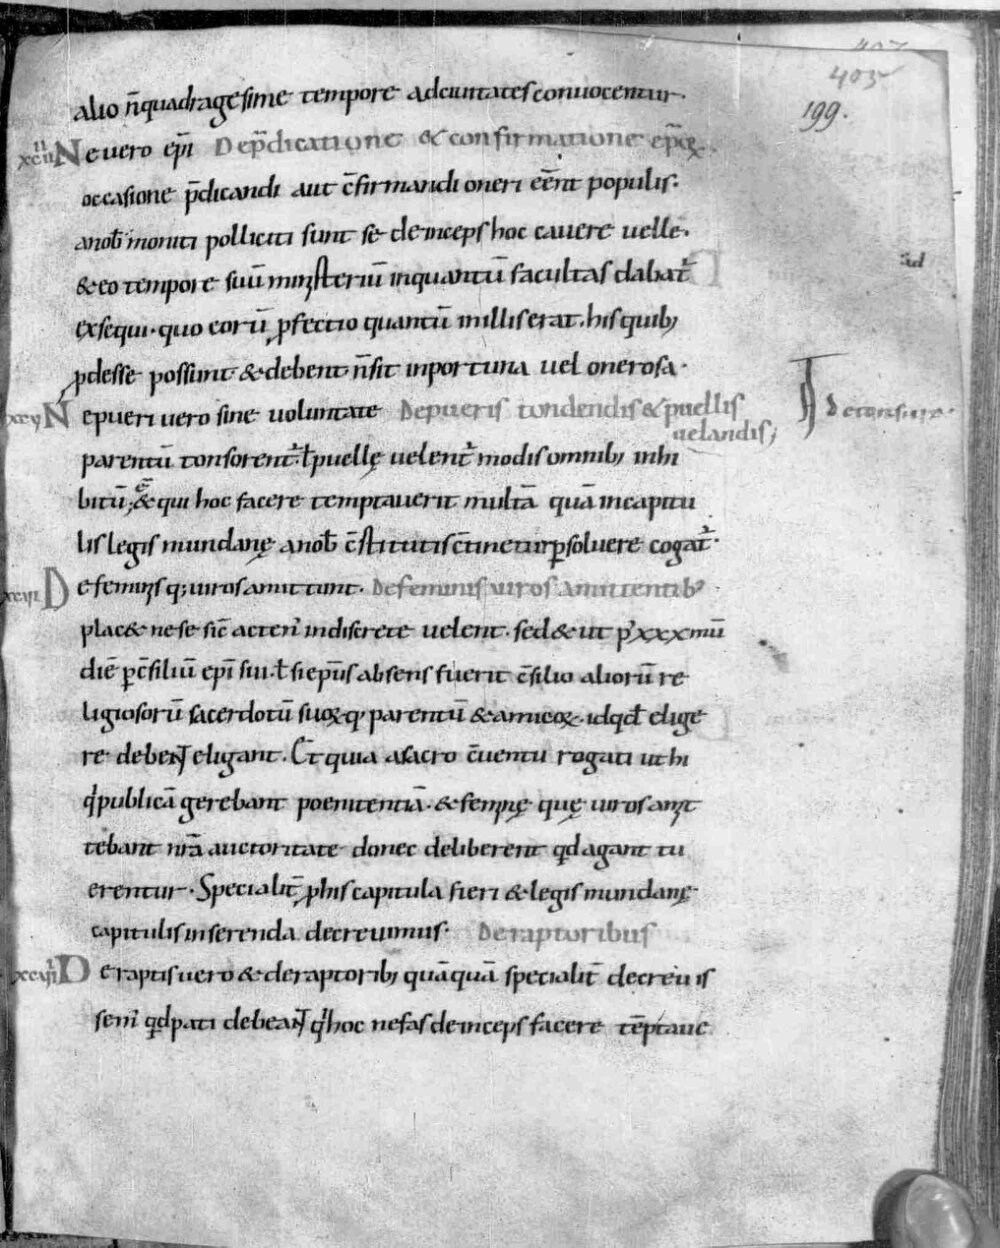 403
199.
alio n̄ quadragesime tempore ad ciuitates conuocentur.
xcvii Ne uero ep̄i De p̄dicatione & confirmatione ep̄oꝝ.
occasione p̄dicandi aut c̄firmandi oneri eēnt populis.
a nob̄ moniti polliciti sunt se deinceps hoc cauere uelle.
& eo tempore suū ministeriū inquantū facultas dabat᷑
exsequi. quo eorū ꝓfectio quantū in illis erat. his quib;
ꝓdesse possunt & debent n̄ sit inportuna uel onerosa.
xcv Ne pueri uero sine uoluntate De pueris tondendis & puellis
uelandis;
De tonsura.
parentū tonsorent᷑. ł puellę uelent᷑ modis omnib; inhi
bitū ē; & qui hoc facere temptauerit multā quā in capitu
lis legis mundanę a nob̄ c̄stitutis c̄tinetur ꝑsoluere cogat᷑.
De feminis q; uiros amittunt. De feminis uiros amittentib;
plac& ne se sic̄ acten᷒ indiscrete uelent. sed & ut p᷒ xxxmū
diē ꝑ c̄siliū ep̄i sui. ł si ep̄us absens fuerit c̄silio aliorū re
ligiosorū sacerdotū suoꝝq; parentū & amicoꝝ. id qd̄ elige
re debent eligant. Et quia a sacro c̄uentu rogati ut hi
qͥ publicā gerebant poenitentiā. & feminę quę uiros amit
tebant nr̄a auctoritate donec deliberent qd̄ agant tu
erentur. Specialit̄ ꝓ his capitula fieri & legis mundanę
capitulis inserenda decreuimus. De raptoribus
De raptis uero & de raptorib; quāquā specialit̄ decreuis
sem᷒ qd̄ pati debeant qͥ hoc nefas deinceps facere tēptaue